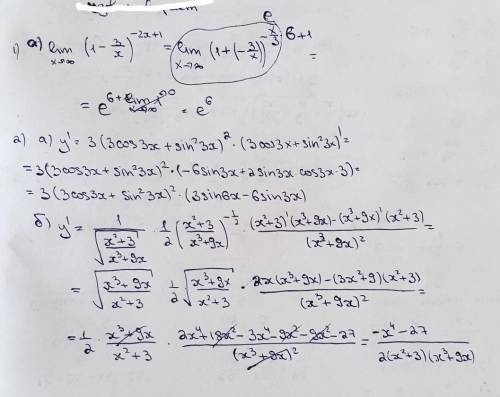 1) a) lim x→∞ (1 - 3/x)^(-2x+1) = lim x→∞ (1 + (-3/x))^(-x/3 · 6+1) =
e
= e^(6+lim x→∞ 0) = e^6
2) a) y' = 3(3cos3x + sin²3x)² · (3cos3x + sin²3x)' =
= 3(3cos3x + sin²3x)² · (-6sin3x + 2sin3x·cos3x·3) =
= 3(3cos3x + sin²3x)² · (3sin6x - 6sin3x)
б) y' = 1/√((x²+3)/(x³+9x)) · 1/2 ((x²+3)/(x³+9x))^(-1/2) · ((x²+3)'(x³+9x) - (x³+9x)'(x²+3))/(x³+9x)² =
= √((x³+9x)/(x²+3)) · 1/2 √((x³+9x)/(x²+3)) · (2x(x³+9x) - (3x²+9)(x²+3))/(x³+9x)² =
= 1/2 · (x³+9x)/(x²+3) · (2x⁴+18x²-3x⁴-9x²-9x²-27)/(x³+9x)² = (-x⁴-27)/(2(x²+3)(x³+9x))